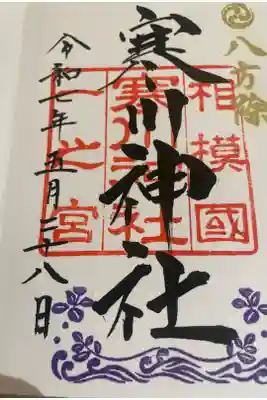 八方除
寒川神社
相模國
寒川神社
一之宮
令和七年五月二十八日